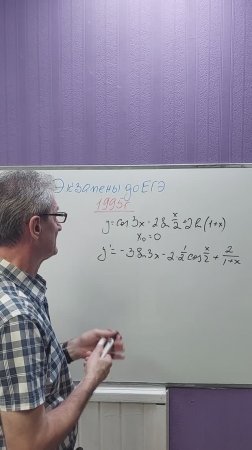 Экзамены до ЕГЭ
1995г
y = cos 3x - 2 sin x/2 + 2 ln (1+x)
x₀ = 0
y' = - 3 sin 3x - 2 1/2 cos x/2 + 2/(1+x)